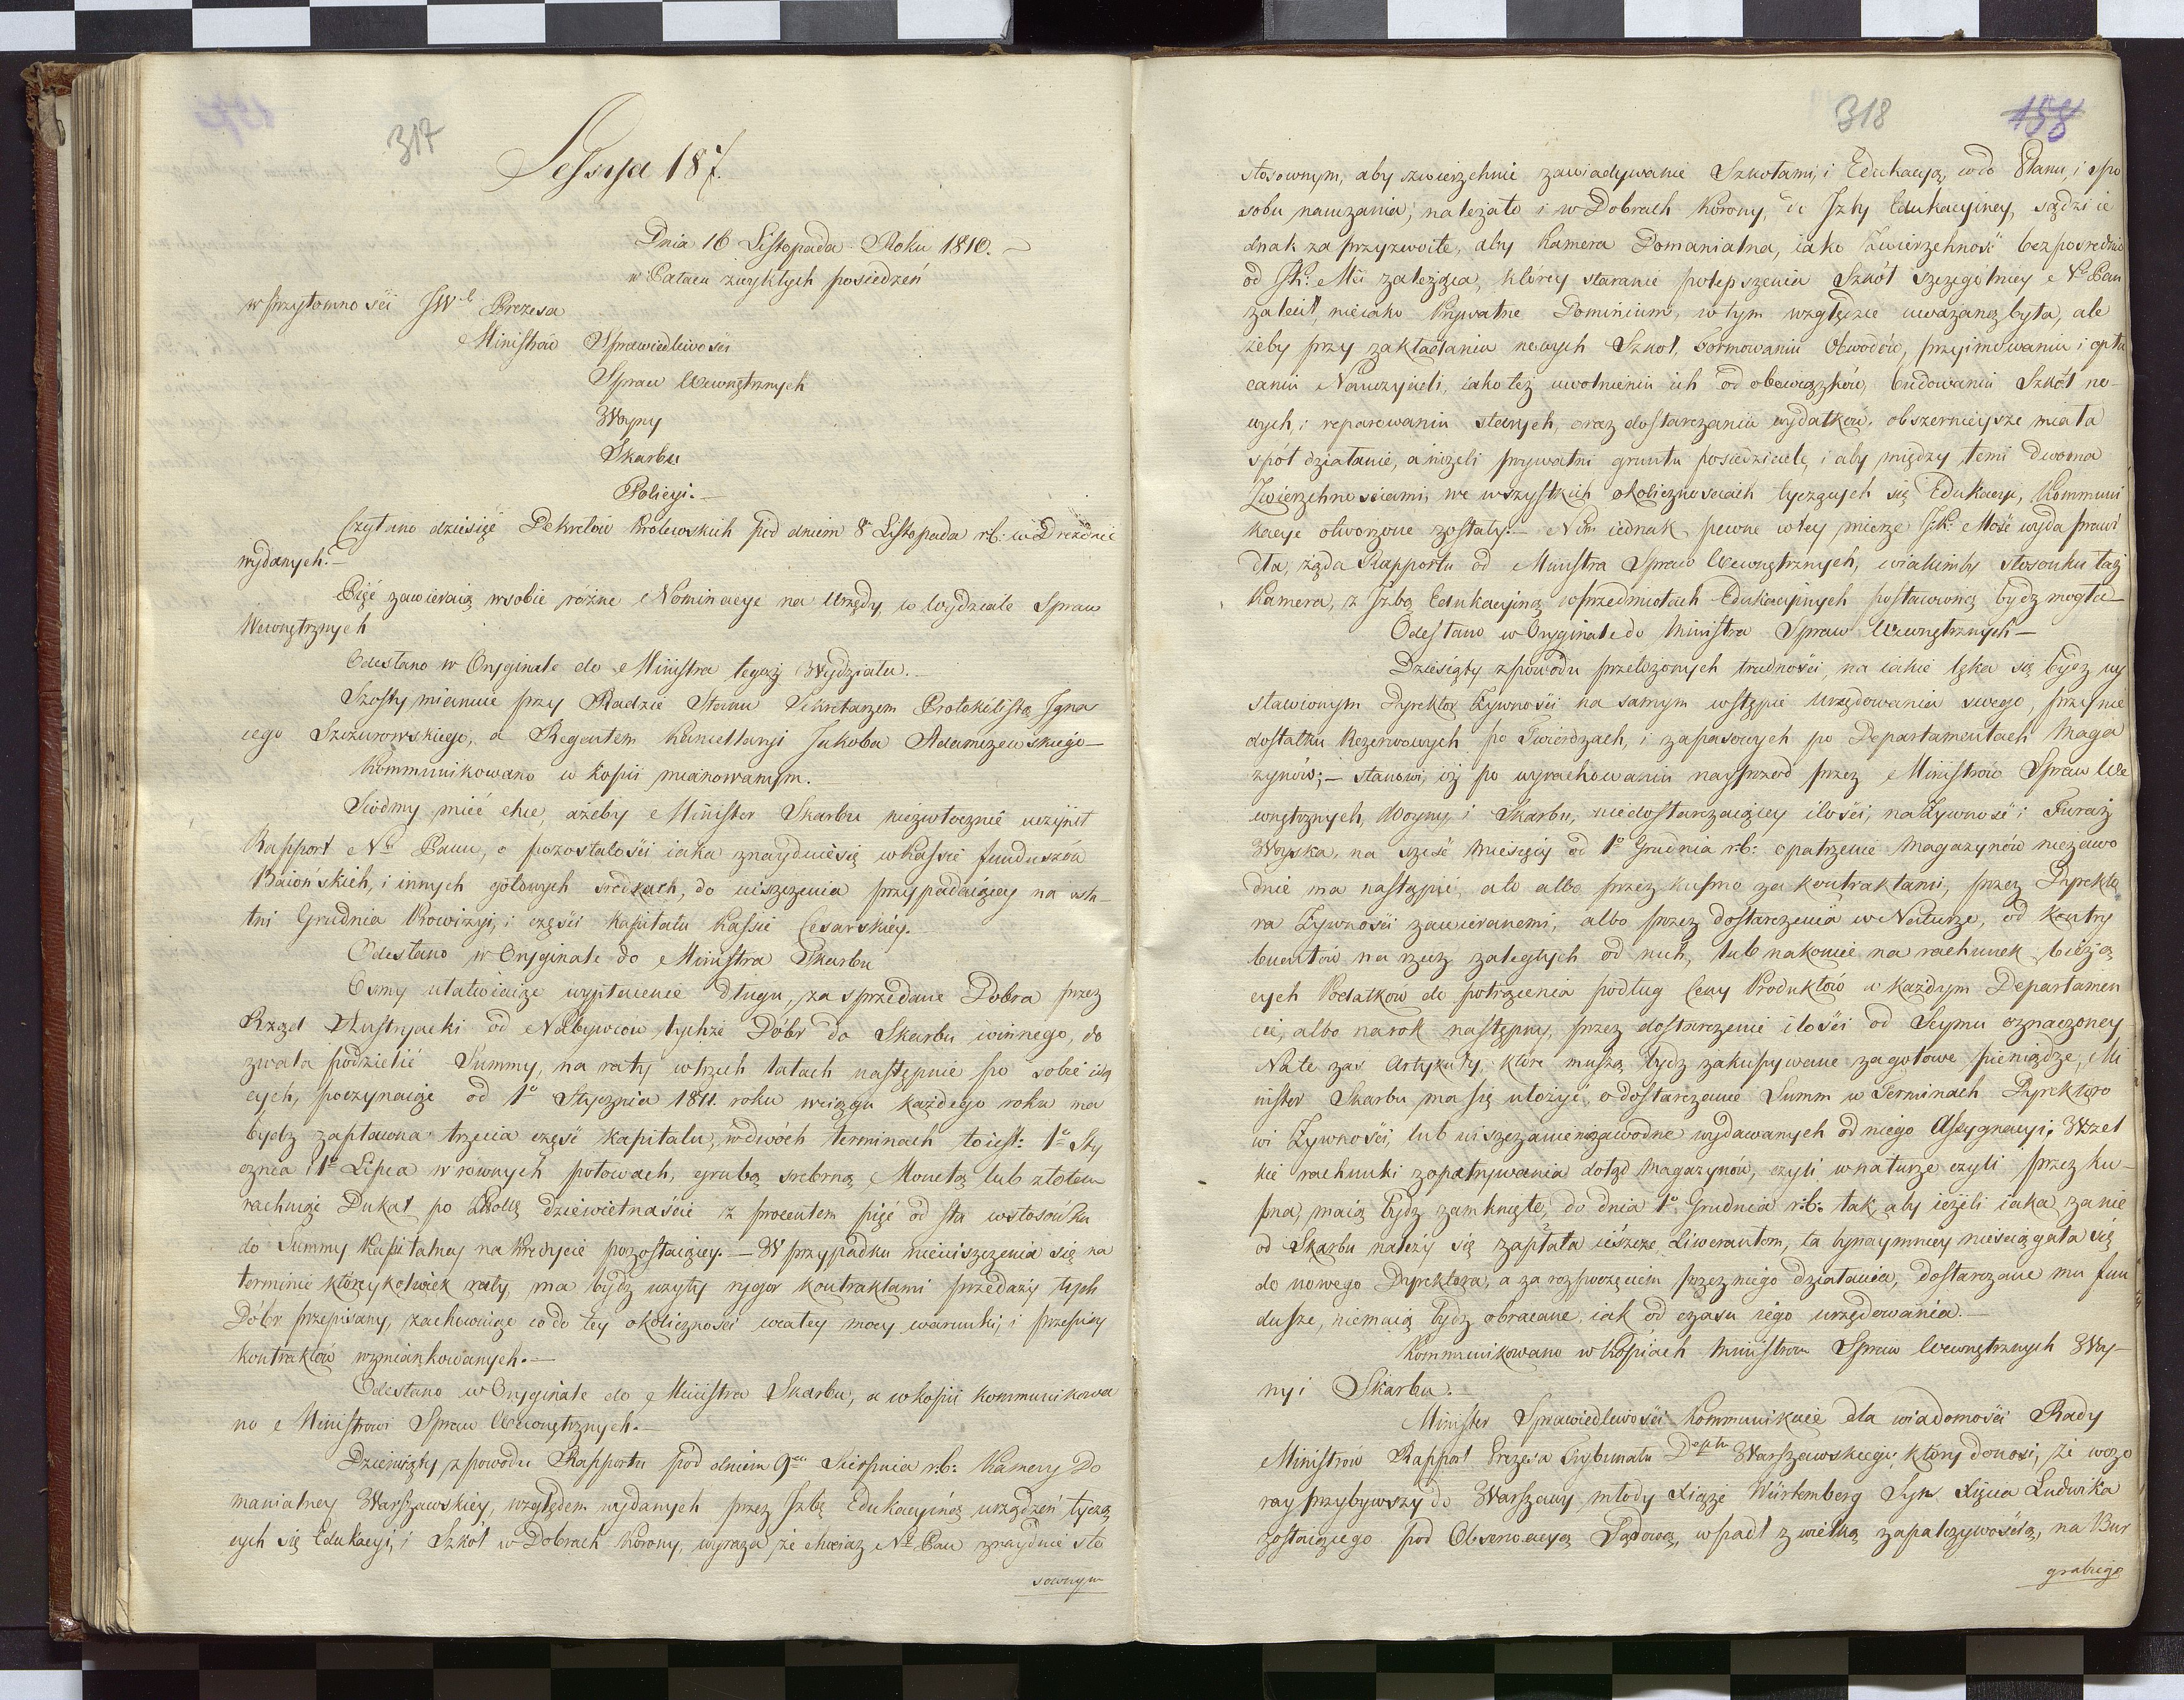 317
Sessya 187.
Dnia 16 Listopada Roku 1810. –
w Pałacu zwykłych posiedzeń
w przytomności JW<sup>o</sup> Prezesa
Ministrów Sprawiedliwości
Spraw Wewnętrznych
Woyny
Skarbu
Policyi. –
Czytano dziesięć Dekretów Królewskich pod dniem 8 Listopada r.b. w Dreźnie
wydanych. –
Pięć zawieraią w sobie różne Nominacye na Urzędy w Wydziale Spraw
Wewnętrznych
Odesłano w Oryginale do Ministra tegoż Wydziału. –
Szósty mianuie przy Radzie Stanu Sekretarzem Protokólistą Igna
cego Szczurowskiego, a Regentem Kancellaryi Jakoba Adamczewskiego –
Kommunikowano w kopii mianowanym.
Siódmy mieć chce, ażeby Minister Skarbu niezwłocznie uczynił
Rapport N<sup>u</sup> Panu, o pozostałości iaka znayduie się w Kassie funduszów
Baiońskich, i innych gotowych srodkach, do uiszczenia przypadaiącey na osta-
tni Grudnia Prowizyi, i części kapitału Kassie Cesarskiéy.
Odesłano w Oryginale do Ministra Skarbu
Osmy ułatwiaiąc wypłacenie długu, za sprzedane Dobra przez
Rząd Austryacki od Nabywców tychże Dóbr do Skarbu winnego, do
zwala podzielić Summy, na raty w trzech latach następnie po sobie idą
cych, poczynaiąc od 1<sup>o</sup> Stycznia 1811. roku w ciągu każdego roku ma
bydź zapłacona trzecia część kapitału, w dwóch terminach to iest: 1<sup>o</sup> Sty
cznia i 1<sup>o</sup> Lipca w rownych połowach, grubą srebrną Monetą lub złotem
rachuiąc Dukat po Złotych dziewiętnaście z procentem pięć od sta w stosunku
do Summy Kapitalnej na kredycie pozostaiącey. – W przypadku nieuiszczenia się na
terminie któreykolwiek raty, ma bydź użyty rygor kontraktami przedaży tych
Dóbr przepisany, zachowuiąc co do tey okoliczności w całey mocy warunki, i przepisy
kontraktów wzmiankowanych. –
Odesłano w Oryginale do Ministra Skarbu, a w kopii kommunikowa
no Ministrowi Spraw Wewnętrznych. –
Dziewiąty z powodu Rapportu pod dniem 9<sup>m</sup> Sierpnia r.b. Kamery Do
manialney Warszawskiey, względem wydanych przez Izbę Edukacyiną urządzeń tyczą
cych się Edukacyi, i Szkół w Dobrach Korony, wyraża, że chociaż N<sup>y</sup> Pan znayduie sto
sownym
318
158
stosownym, aby zwierzchnie zawiadywanie Szkołami, i Edukacyą, co do Planu, i spo
sobu nauczania, należało i w Dobrach Korony, do Izby Edukacyiney, sądzi ie
dnak za przyzwoite, aby Kamera Domanialna, iako Zwierzchność bezpośrednio
od JK. Mci zależąca, którey staranie polepszenia Szkół szczegółniey N<sup>y</sup> Pan
zalecił, nieiako Prywatne Dominium, w tym względzie uważaną była, ale
żeby przy zakładaniu nowych Szkół, formowaniu Obwodów, przyimowaniu i opła
caniu Nauczycieli, iako też uwolnieniu ich od obowiązków, budowaniu Szkół no-
wych, i reparowaniu starych, oraz dostarczaniu wydatków, obszernieysze miała
spół działanie, aniżeli prywatni gruntu posiedziciele, i aby między temi dwoma
Zwierzchnościami, we wszystkich okolicznościach tyczących się Edukacyi, Kommuni
kacye otworzone zostały. – Nim iednak pewne w tey mierze JK. Mość wyda prawi
dła, żąda Rapportu od Ministra Spraw Wewnętrznych, w iakimby stosunku taż
Kamera, z Izbą Edukacyiną w przedmiotach Edukacyinych postawioną bydź mogła –
Odesłano w Oryginale do Ministra Spraw Wewnętrznych –
Dziesiąty z powodu przełożonych trudności, na iakie lęka się bydź wy
stawionym Dyrektor Żywności na samym wstępie urzędowania swego, przy nie
dostatku Rezerwowych po Twierdzach, i zapasowych po Departamentach Maga
zynów; – stanowi, iż po wyrachowaniu nayprzod przez Ministrów Spraw We
wnętrznych, Woyny, i Skarbu, niedostarczaiącey ilości, na Żywność i Furaż
Woyska, na sześć Miesięcy od 1<sup>o</sup> Grudnia r.b. opatrzenie Magazynów niezawo
dnie ma nastąpić, ale albo przez kupno za kontraktami, przez Dyrekto
ra Żywności zawieranemi, albo przez dostarczenia w Naturze, od kontry
buentów na rzecz zaległych od nich, lub nakoniec na rachunek bieżą
cych Podatków do potrącenia podług Ceny Produktów w każdym Departamen
cie, albo na rok następny, przez dostarczenie ilości od Seymu oznaczoney
Na te zaś Artykuły, które muszą bydź zakupywane za gotowe pieniądze, Mi
nister Skarbu ma się ułożyć, o dostarczanie Summ w Terminach Dyrektoro
wi Żywności, lub uiszczanie niezawodne wydawanych od niego Assygnacyi. Wszel
kie rachunki z opatrywania dotąd Magazynów, czyli w naturze czyli przez ku-
pna, maią bydź zamknięte, do dnia 1<sup>o</sup> Grudnia r.b. tak, aby ieżeli iaka za nie
od Skarbu należy się zapłata ieszcze Liwerantom, ta bynaymniey nieściągała się
do nowego Dyrektora, a za rozpoczęciem przez niego działania, dostarczane mu fun
dusze, niemaią bydź obracane, iak od czasu iego urzędowania. –
Kommunikowano w Kopiach Ministrom Spraw Wewnętrznych Woy-
ny i Skarbu.
Minister Sprawiedliwości kommunikuie dla wiadomości Rady
Ministrów Rapport Prezesa Trybunału D<sup>eptu</sup> Warszawskiego, który donosi, że wczo
ray przybywszy do Warszawy, młody Xiąże Würtemberg Syn Xięcia Ludwika
zostaiącego pod Obserwacyą Sądową, wpadł z wielką zapalczywością, na Bur
grabiego